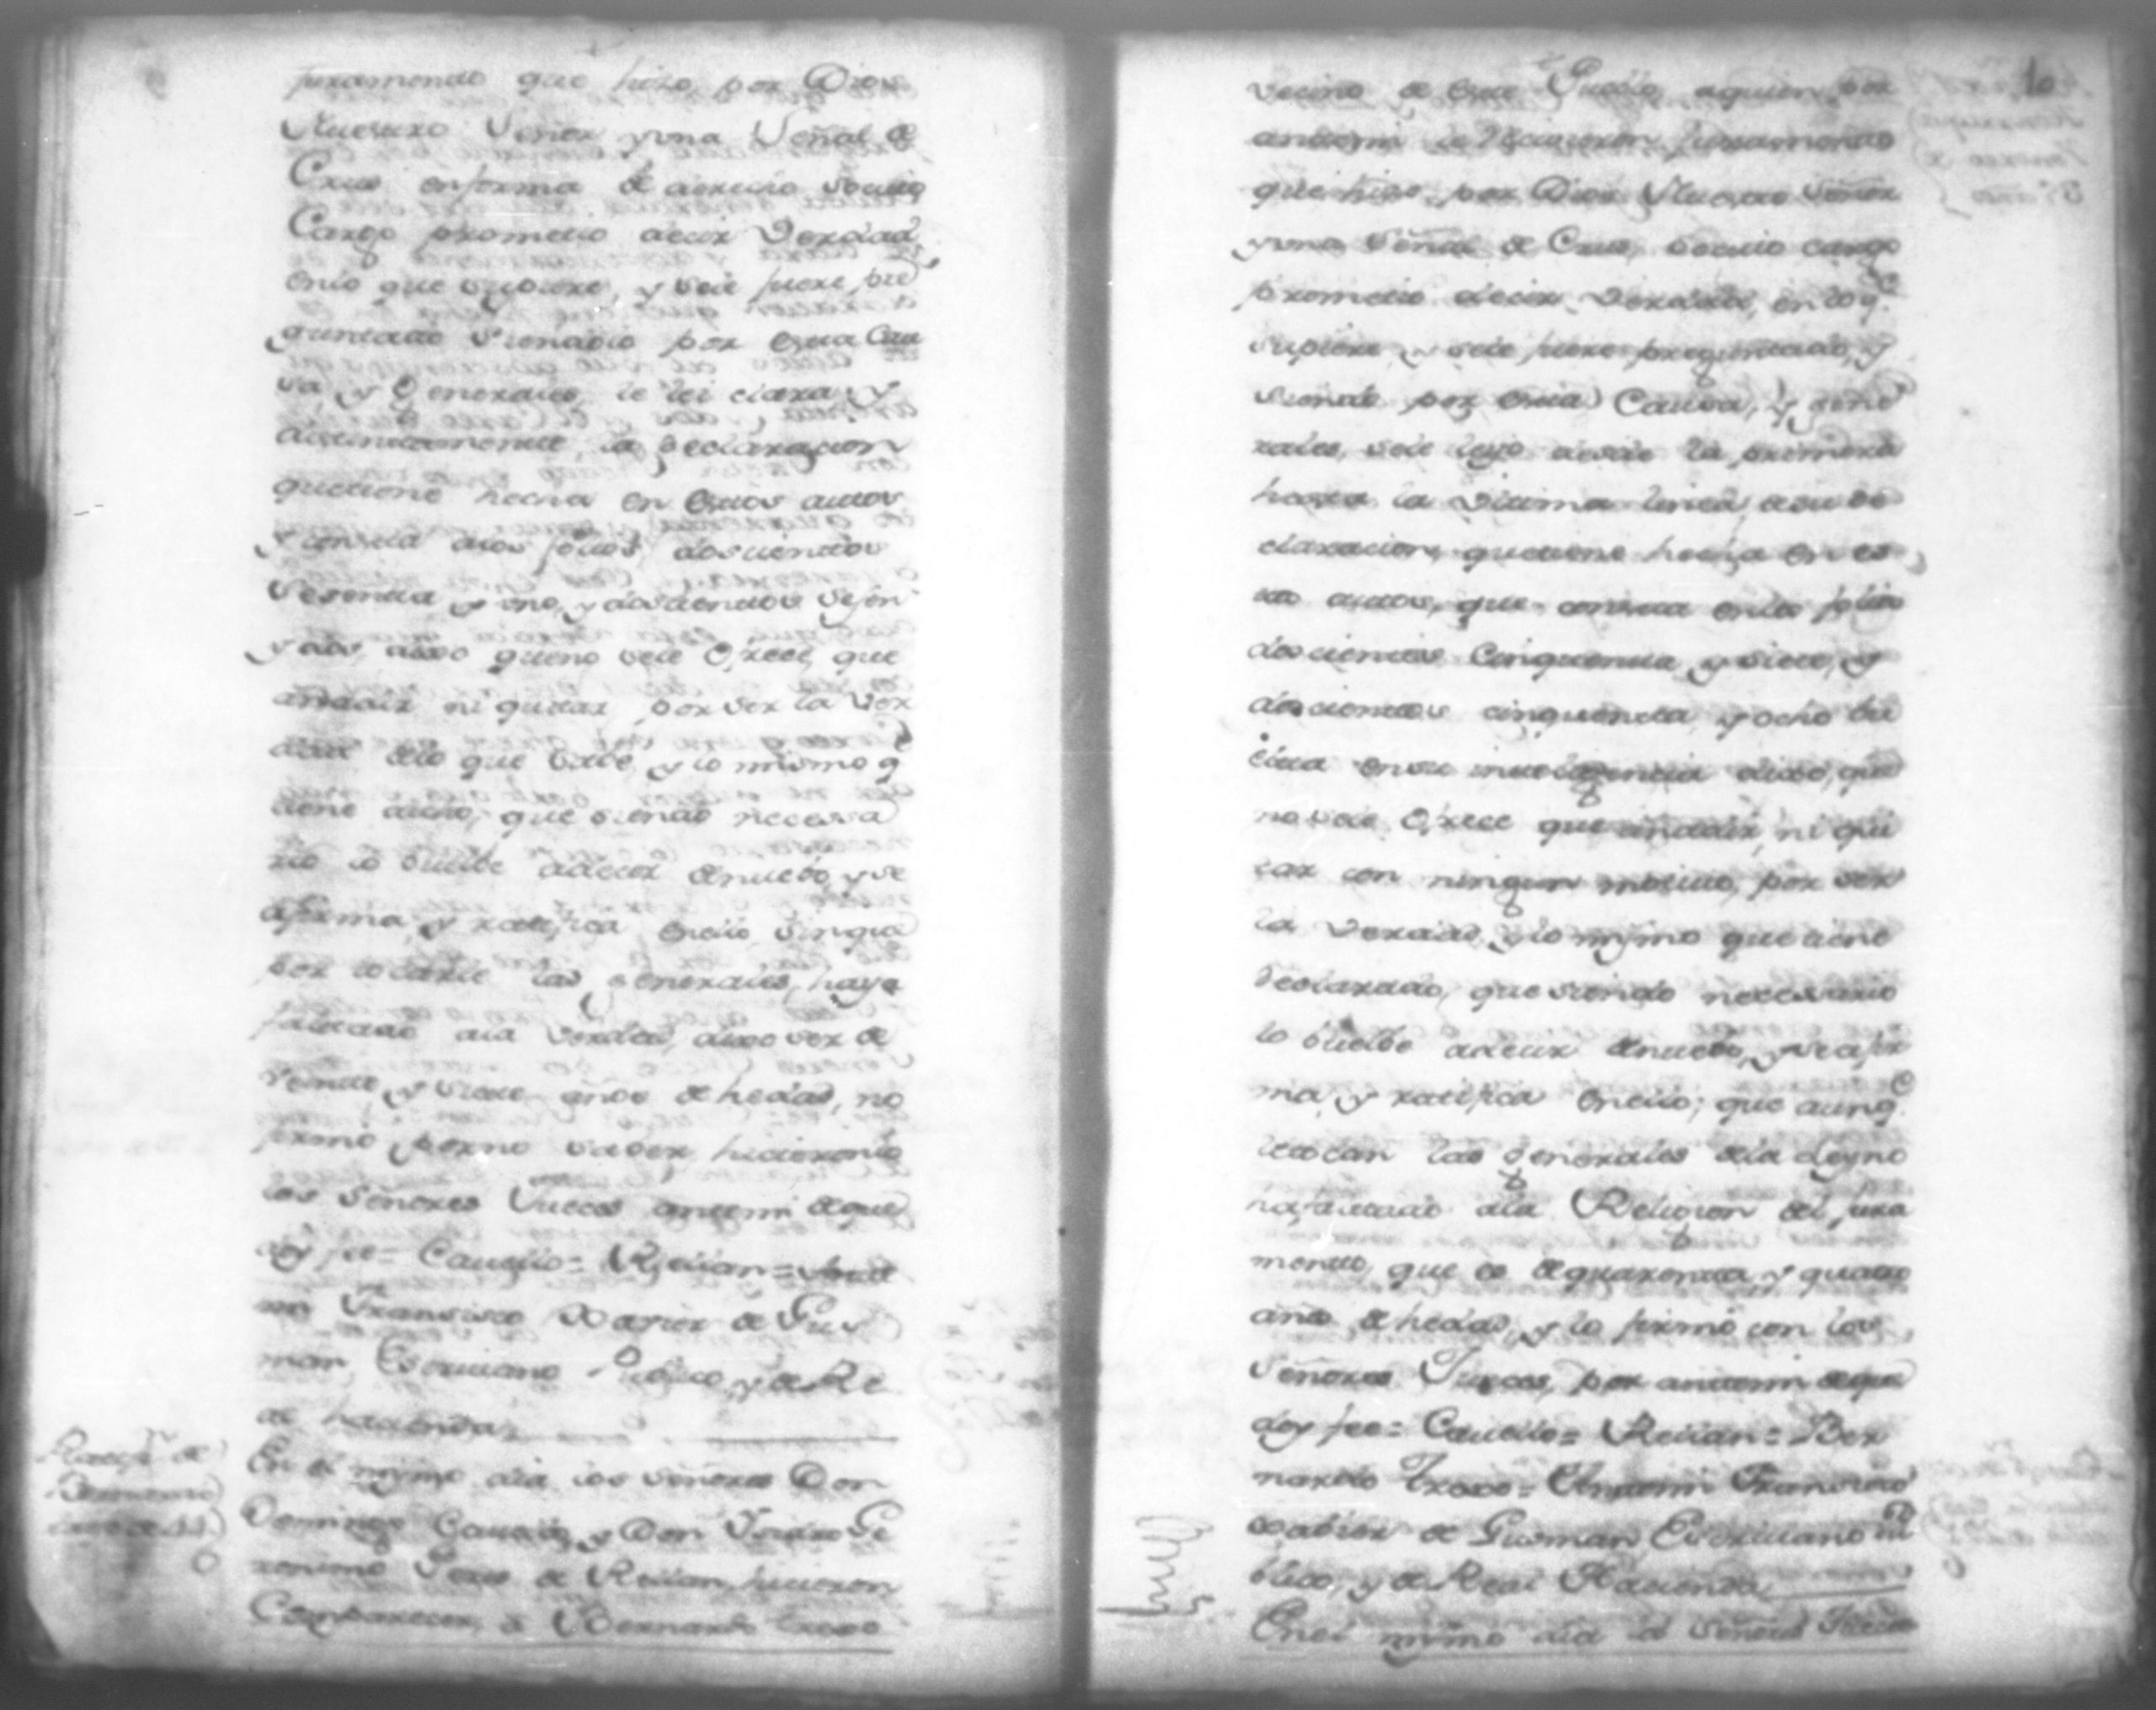 juramento que hizo por Dios
Nuestro Señor yuna Señal de
Cruz enforma de derecho socuio
Cargo prometio decir Verdad
enlo que supiere, y sele fuere pre
guntado siendolo por esta Cau
sa, y Generales, le lei clara y
distintamente la declaracion
quetiene hecha en estos autos
y consta alos folios doscientos
Sesenta y uno, y doscientos Sesen
y dos, dixo queno sele Ofrece que
añadir ni quitar por ser la Ver
dad delo que Sabe y lo mismo q.e
tiene dicho, que siendo necessa
rio lo buelbe adecir denuebo, y se
afirma, y ratifica enello sinque
por tocarle las generales haya
faltado ala Verdad, dixo ser de
Veinte y siete años de hedad, no
firmo porno saber hicieronlo
los Señores Jueces antemi deque
doy fee= Cauello= Rellan= Ante
mi Francisco Xavier de Gus
man Escriuano Publico, y de Re
al hacienda
Ratif.n de
Bernardo
En el mismo dia los señores Don
Domingo Cauello, y Don Ysidro Ge
ronimo de Rellan hicieron
Comparecer, a Bernardo Troxo
10
vecino de este Pueblo, aquien por
antemi le recivieron juramento
que hizo por Dios Nuestro Señor
yuna Señal de Cruz, socuio cargo
prometio decir Verdad, en lo q.e
supiere y sele fuere preguntado, y
siendo por esta Causa, y gene
rales, sele leyo desde la primera
hasta la Vltima linea, desu de
claracion, quetiene hecha en es
tos autos, que consta enlos folios
doscientos Cinquenta, y siete, y
doscientos cinquenta y ocho bu
elta ensu inteligencia dixo, que
no sele Ofrece que añadir, ni qui
tar con ningun motiuo, por ser
la Verdad, y lo mismo que tiene
declarado, que siendo necessario
lo buelbe adecir denuebo, yseafir
ma, y ratifica enello; que aunq.e
letocan las generales dela Ley no
hafaltado ala Religion del jura
mento, que es dequarenta y quatro
años de hedad, y lo firmó con los
Señores Jueces, por antemi deque
doy fee= Cauello= Rellan= Ber
nardo Troxo= Antemi Francisco
Xabier de Gusman Escriuano Pu
blico, y de Real Hacienda
Enel mismo dia los Señores Jueces